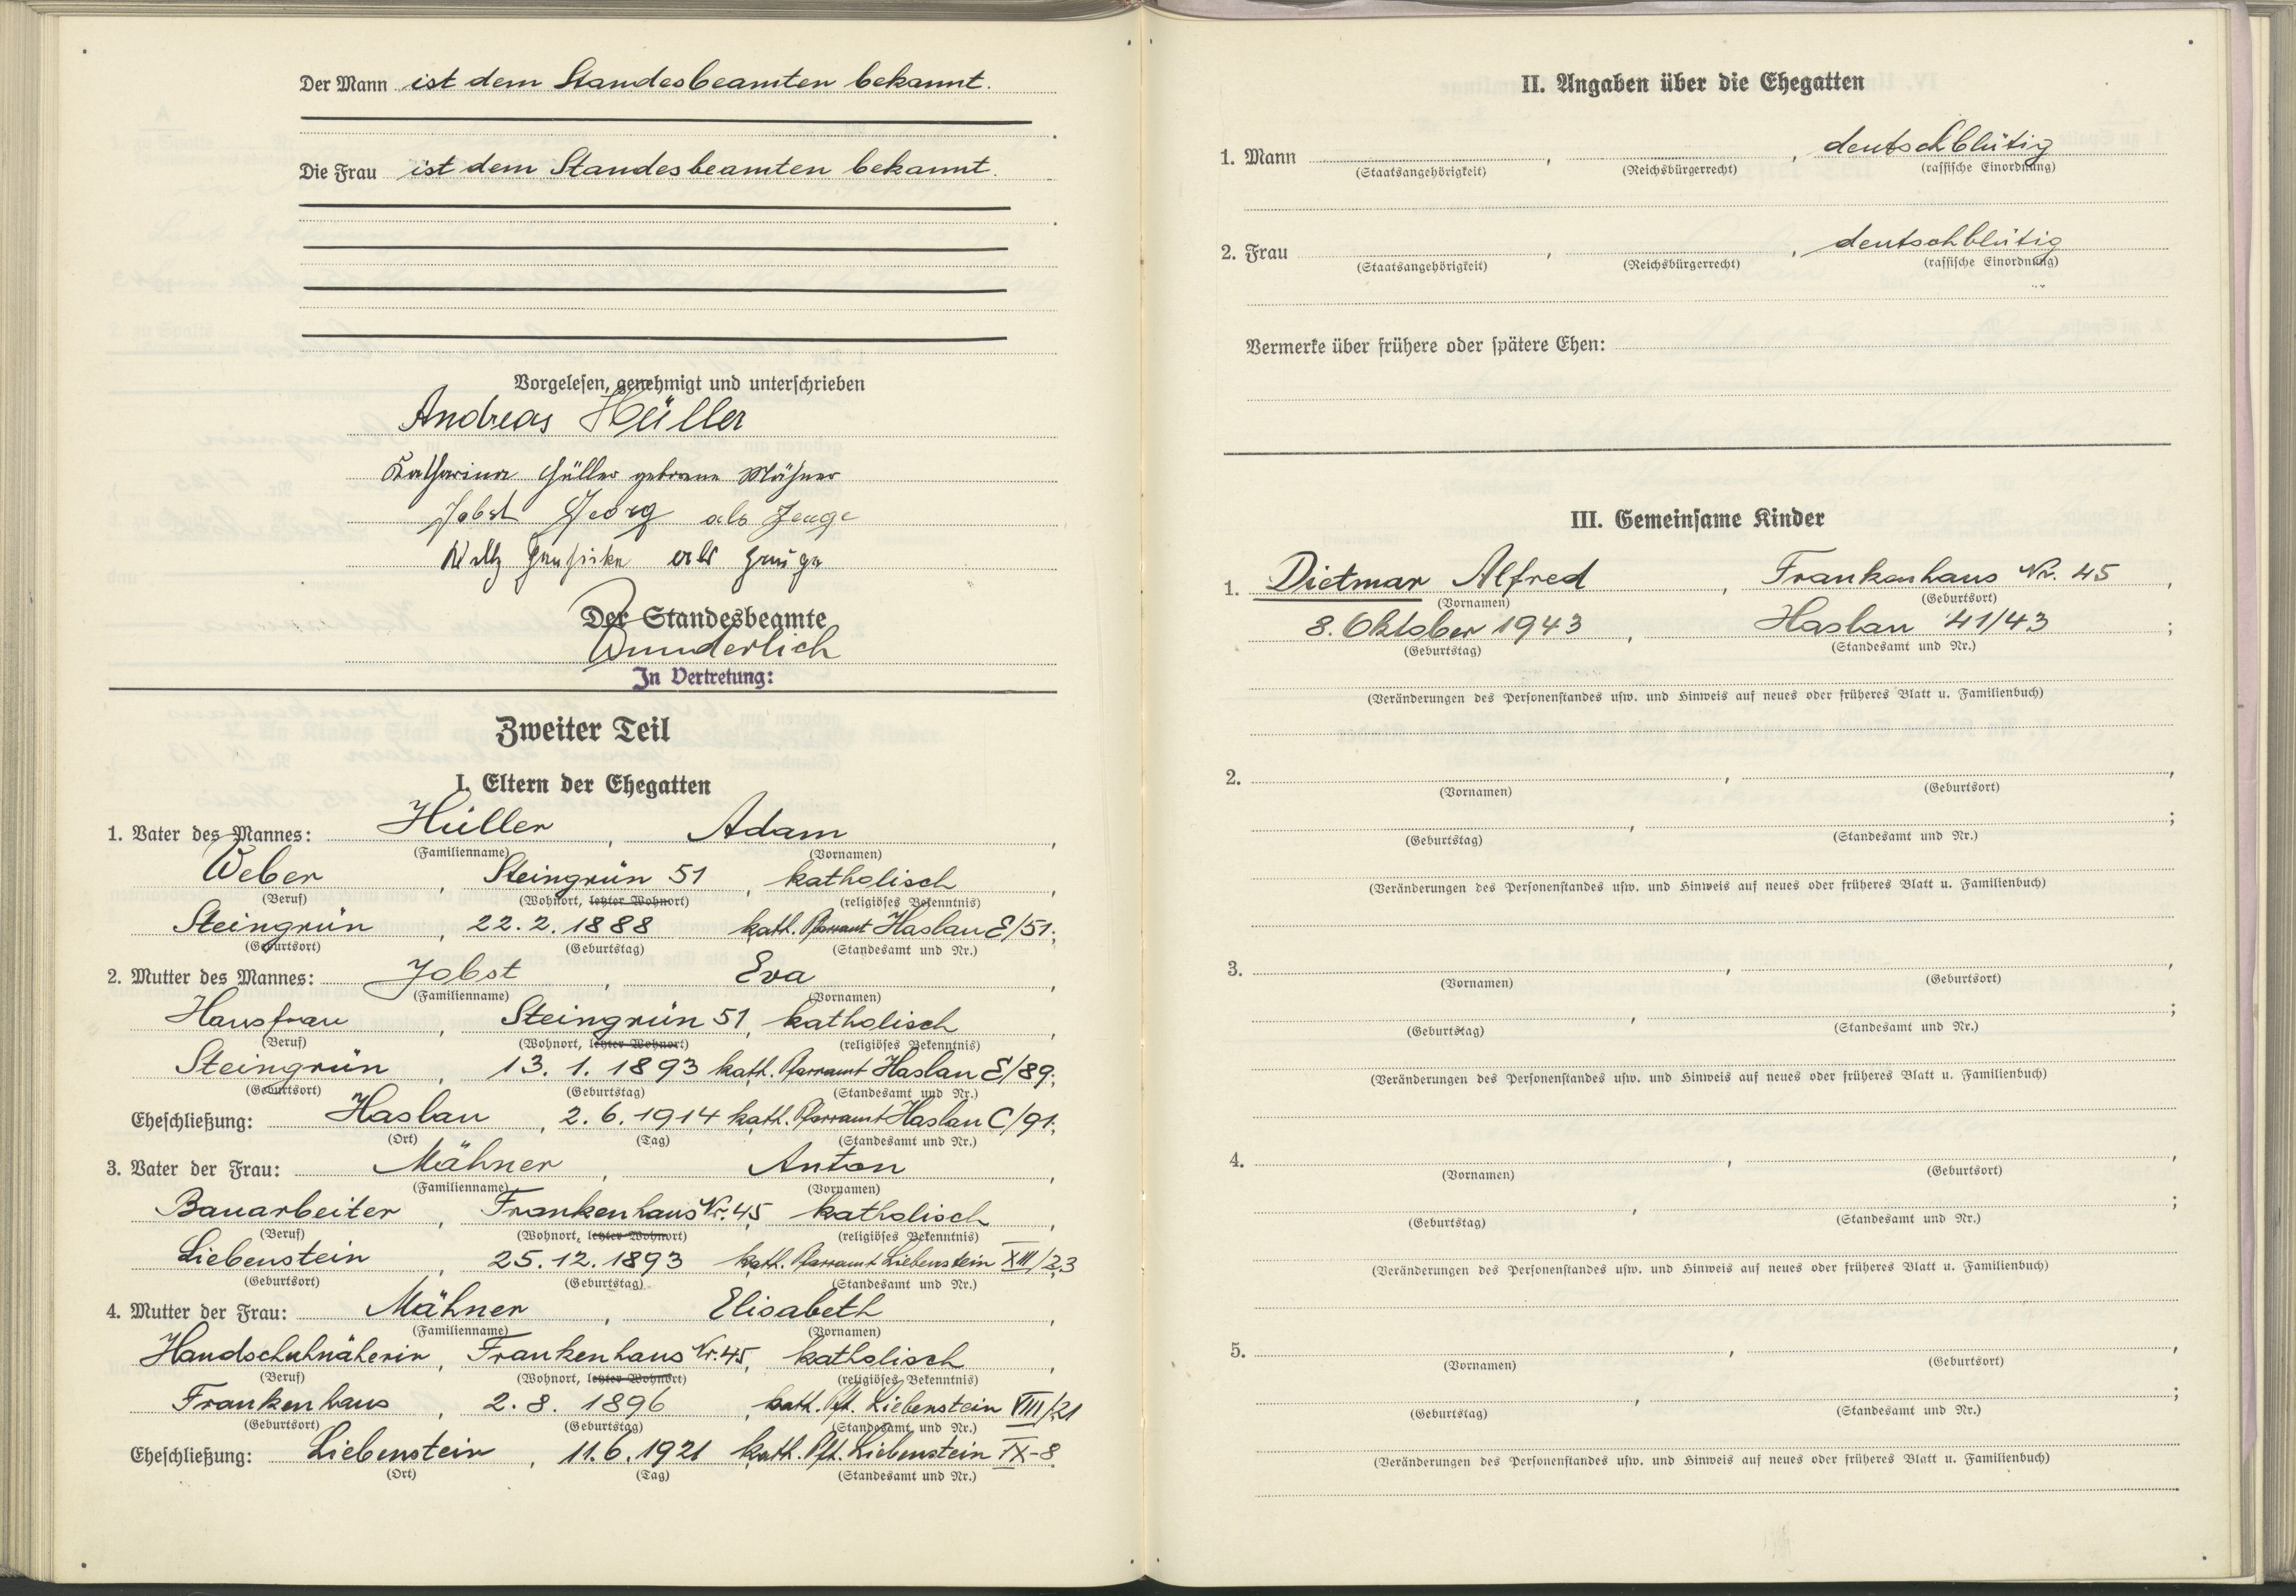 Der Mann ist dem Standesbeamten bekannt.
Die Frau ist dem Standesbeamten bekannt.
Vorgelesen, genehmigt und unterschrieben
Andreas Hüller
Katharina Hüller geborene Mähner
Jobst Georg als Zeuge
als Zeuge
Der Standesbeamte
Wunderlich
In Vertretung:
Zweiter Teil
I. Eltern der Ehegatten
1. Vater des Mannes: Hüller, Adam,
(Familienname) (Vornamen)
Weber, Steingrün 51, katholisch,
(Beruf) (Wohnort, letzter Wohnort) (religiöses Bekenntnis)
Steingrün, 22.2.1888 kath. Pfarramt Haslau E/51;
(Geburtsort) (Geburtstag) (Standesamt und Nr.)
2. Mutter des Mannes: Jobst, Eva,
(Familienname) (Vornamen)
Hausfrau, Steingrün 51, katholisch,
(Beruf) (Wohnort, letzter Wohnort) (religiöses Bekenntnis)
Steingrün, 13.1.1893 kath. Pfarramt Haslau E/89;
(Geburtsort) (Geburtstag) (Standesamt und Nr.)
Eheschließung: Haslau, 2.6.1914 kath. Pfarramt Haslau C/91;
(Ort) (Tag) (Standesamt und Nr.)
3. Vater der Frau: Mähner, Anton,
(Familienname) (Vornamen)
Bauarbeiter, Frankenhaus Nr. 45, katholisch,
(Beruf) (Wohnort, letzter Wohnort) (religiöses Bekenntnis)
Liebenstein, 25.12.1893 kath. Pfarramt Liebenstein XIII/23
(Geburtsort) (Geburtstag) (Standesamt und Nr.)
4. Mutter der Frau: Mähner, Elisabeth,
(Familienname) (Vornamen)
Handschuhnäherin, Frankenhaus Nr. 45, katholisch,
(Beruf) (Wohnort, letzter Wohnort) (religiöses Bekenntnis)
Frankenhaus, 2.8.1896, kath. Pft. Liebenstein VIII/21
(Geburtsort) (Geburtstag) (Standesamt und Nr.)
Eheschließung: Liebenstein, 11.6.1921 kath. Pft. Liebenstein IX-8
(Ort) (Tag) (Standesamt und Nr.)
II. Angaben über die Ehegatten
1. Mann , , deutschblütig
(Staatsangehörigkeit) (Reichsbürgerrecht) (rassische Einordnung)
2. Frau , , deutschblütig
(Staatsangehörigkeit) (Reichsbürgerrecht) (rassische Einordnung)
Vermerke über frühere oder spätere Ehen:
III. Gemeinsame Kinder
1. Dietmar Alfred, Frankenhaus Nr. 45,
(Vornamen) (Geburtsort)
8. Oktober 1943, Haslau 41/43;
(Geburtstag) (Standesamt und Nr.)
(Veränderungen des Personenstandes usw. und Hinweis auf neues oder früheres Blatt u. Familienbuch)
2. , ,
(Vornamen) (Geburtsort)
, ;
(Geburtstag) (Standesamt und Nr.)
(Veränderungen des Personenstandes usw. und Hinweis auf neues oder früheres Blatt u. Familienbuch)
3. , ,
(Vornamen) (Geburtsort)
, ;
(Geburtstag) (Standesamt und Nr.)
(Veränderungen des Personenstandes usw. und Hinweis auf neues oder früheres Blatt u. Familienbuch)
4. , ,
(Vornamen) (Geburtsort)
, ;
(Geburtstag) (Standesamt und Nr.)
(Veränderungen des Personenstandes usw. und Hinweis auf neues oder früheres Blatt u. Familienbuch)
5. , ,
(Vornamen) (Geburtsort)
, ;
(Geburtstag) (Standesamt und Nr.)
(Veränderungen des Personenstandes usw. und Hinweis auf neues oder früheres Blatt u. Familienbuch)